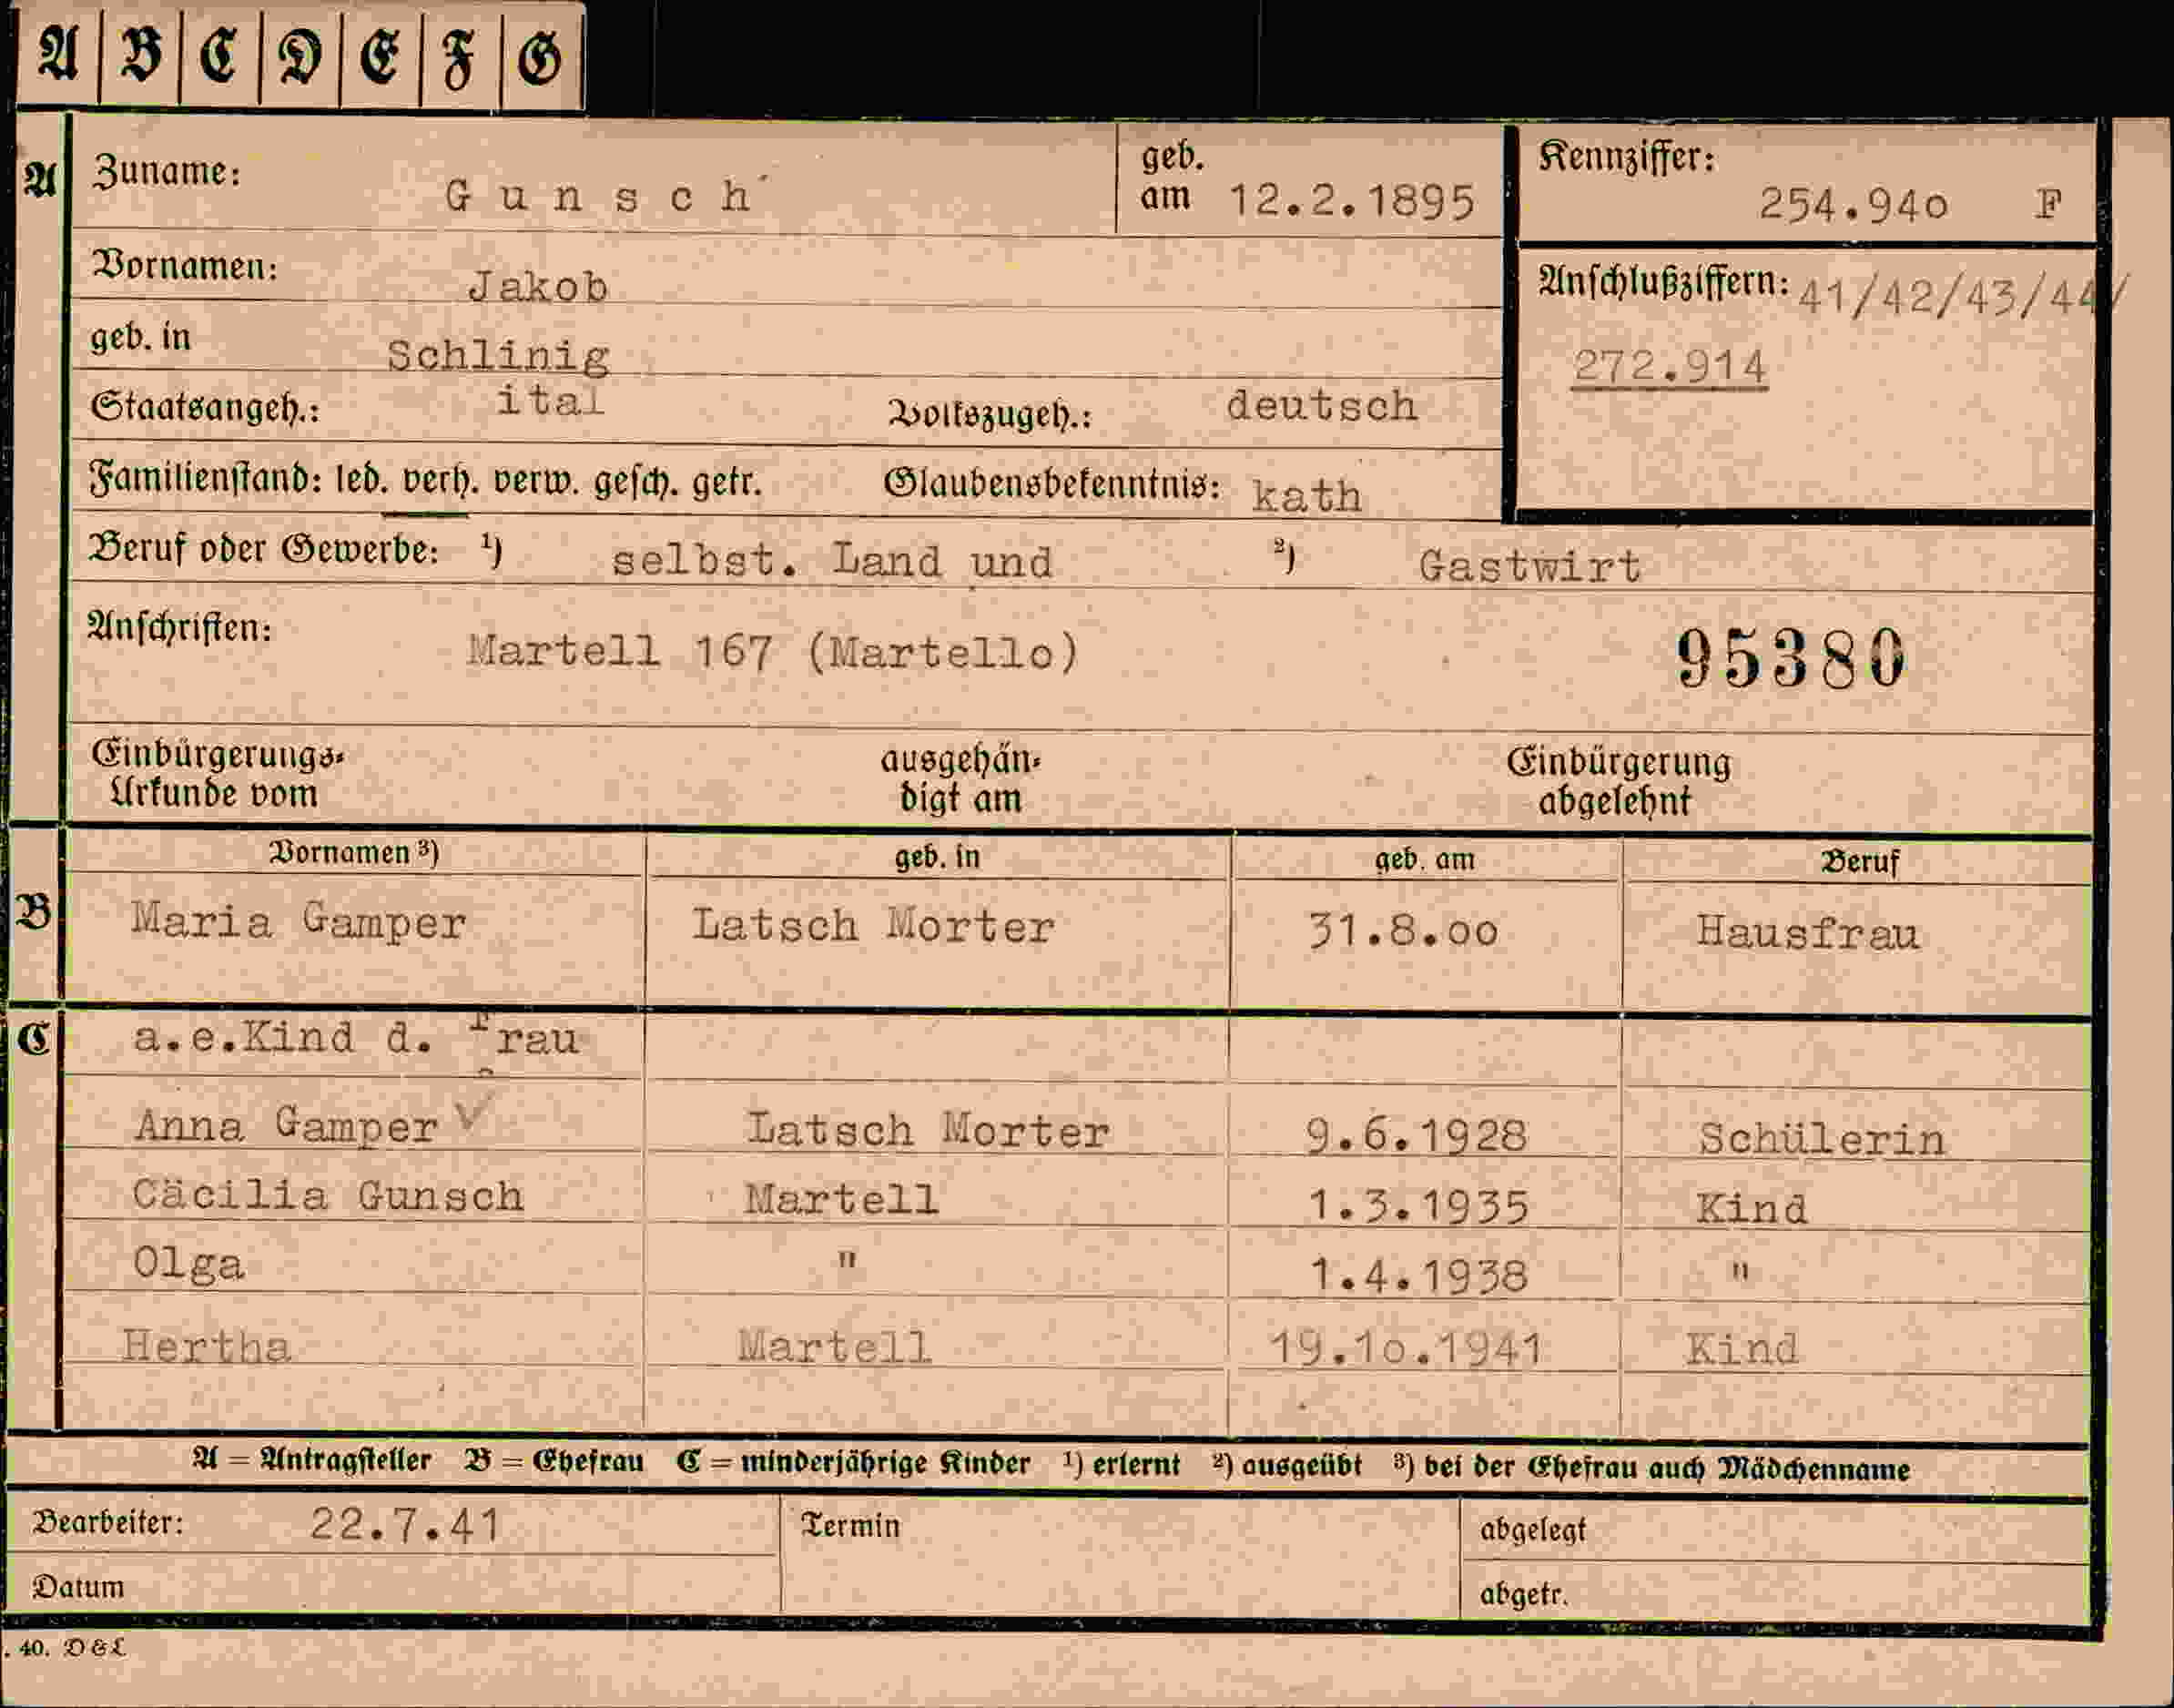 A B C D E F G
A Zuname: Gunsch geb. am 12.2.1895 Kennziffer: 254.940 F
Vornamen: Jakob Anschlußziffern: 41/42/43/44/
geb. in Schlinig 272.914
Staatsangeh.: ital Volkszugeh.: deutsch
Familienstand: led. verh. verw. gesch. getr. Glaubensbekenntnis: kath
Beruf oder Gewerbe: ¹) selbst. Land und ²) Gastwirt
Anschriften: Martell 167 (Martello) 95380
Einbürgerungs- ausgehän- Einbürgerung
Urkunde vom digt am abgelehnt
Vornamen ³) geb. in geb. am Beruf
B Maria Gamper Latsch Morter 31.8.00 Hausfrau
C a.e.Kind d. Frau
Anna Gamper Latsch Morter 9.6.1928 Schülerin
Cäcilia Gunsch Martell 1.3.1935 Kind
Olga " 1.4.1938 "
Hertha Martell 19.10.1941 Kind
A = Antragsteller B = Ehefrau C = minderjährige Kinder ¹) erlernt ²) ausgeübt ³) bei der Ehefrau auch Mädchenname
Bearbeiter: 22.7.41 Termin abgelegt
Datum abgetr.
. 40. D & L